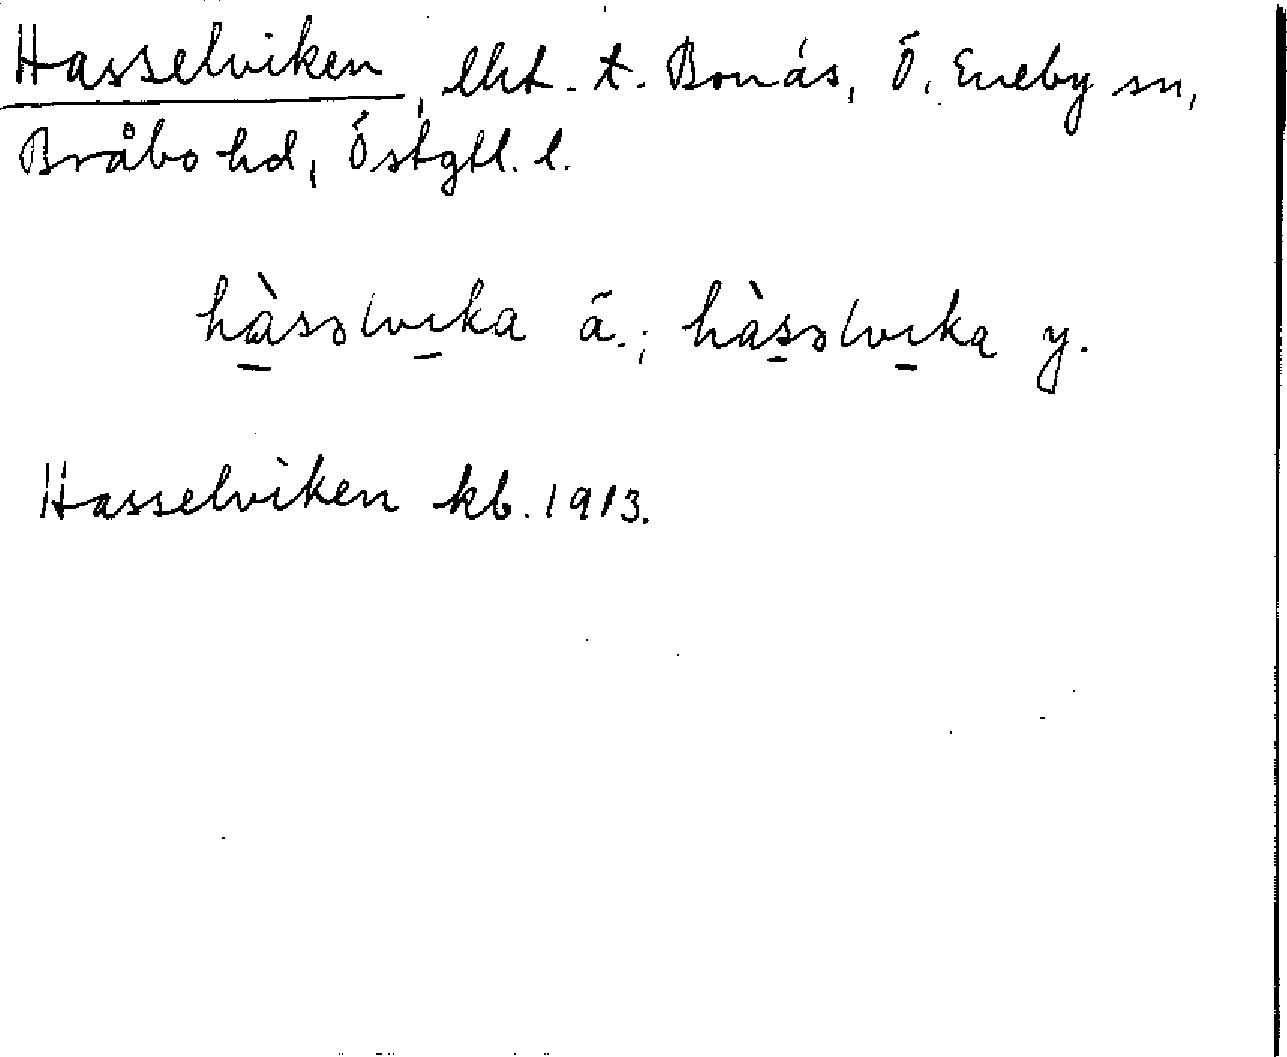 Hasselviken, lht. t. Bonäs, Ö. Eneby sn,
Bråbo hd, Östgtl. l.
hàsəlvıka ä.; hàsəlvıka y.
Hasselviken kb. 1913.